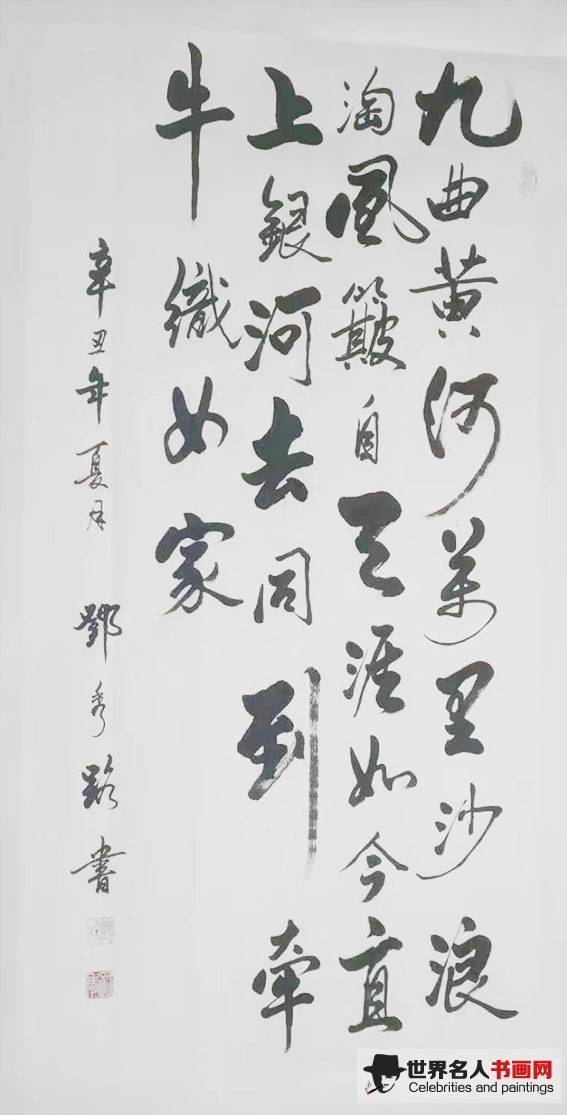 九曲黄河萬里沙浪
淘風簸自天涯如今直
上銀河去同到牽
牛織女家
辛丑年夏月 鄧秀路書
世界名人书画网
Celebrities and paintings